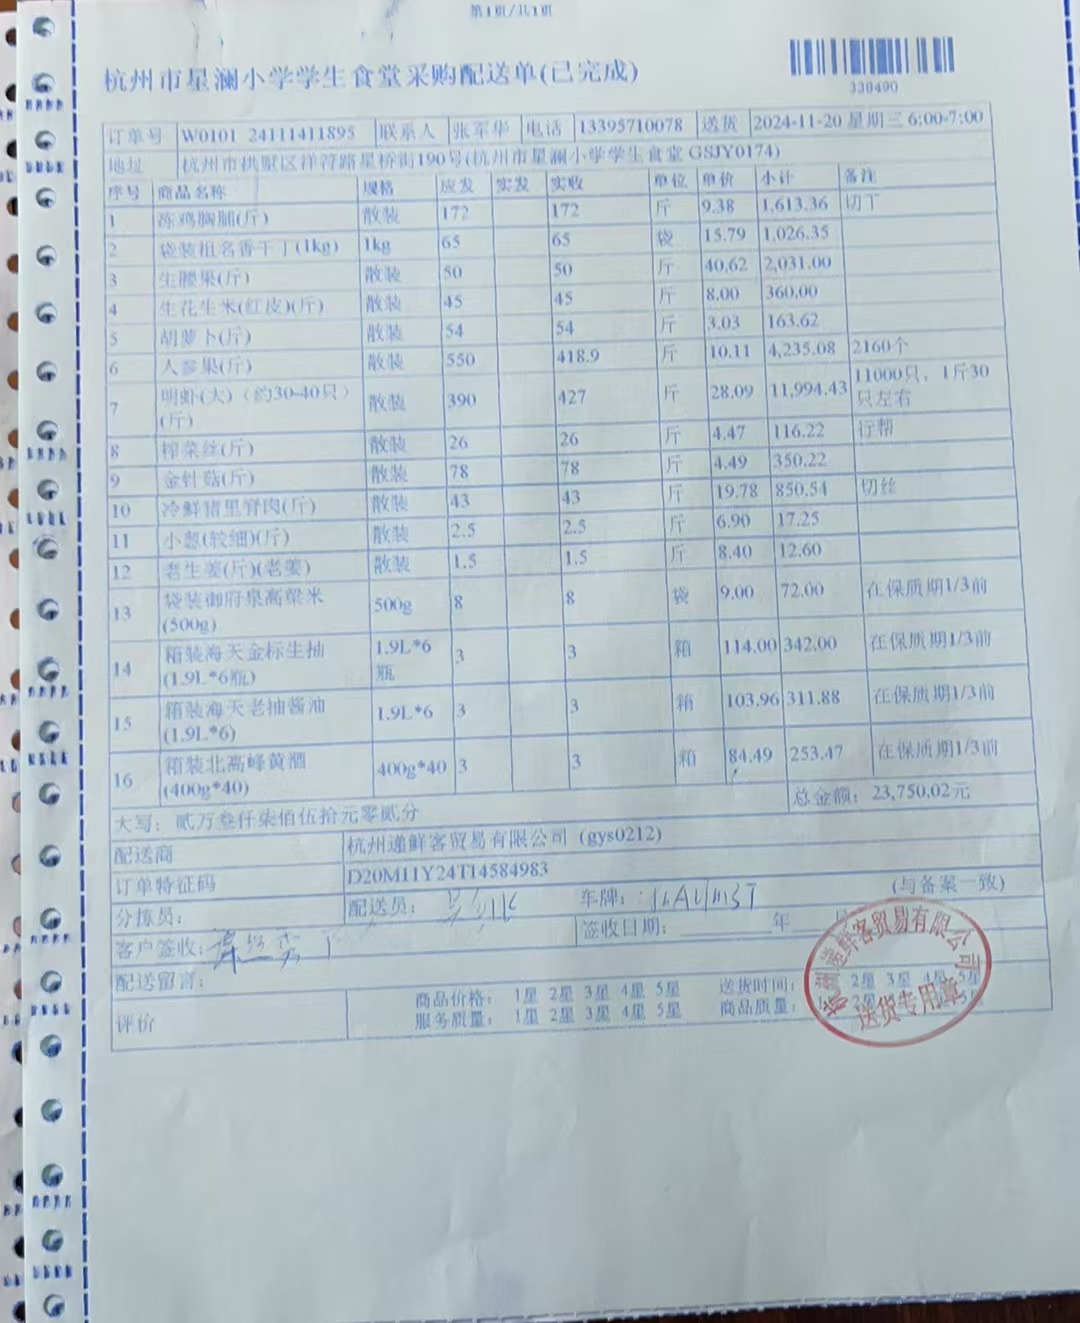 第1页/共1页
杭州市星澜小学学生食堂采购配送单(已完成)
330490
订单号 W0101 24111411895 联系人 张军华 电话 13395710078 送货 2024-11-20 星期三 6:00-7:00
地址 杭州市拱墅区祥符路星桥街190号(杭州市星澜小学学生食堂 GSJY0174)
序号 商品名称 规格 应发 实发 实收 单位 单价 小计 备注
1 冻鸡胸脯(斤) 散装 172 172 斤 9.38 1,613.36 切丁
2 袋装祖名香干丁(1kg) 1kg 65 65 袋 15.79 1,026.35
3 生腰果(斤) 散装 50 50 斤 40.62 2,031.00
4 生花生米(红皮)(斤) 散装 45 45 斤 8.00 360.00
5 胡萝卜(斤) 散装 54 54 斤 3.03 163.62
6 人参果(斤) 散装 550 418.9 斤 10.11 4,235.08 2160个
7 明虾(大)(约30-40只)(斤) 散装 390 427 斤 28.09 11,994.43 11000只, 1斤30只左右
8 榨菜丝(斤) 散装 26 26 斤 4.47 116.22 行帮
9 金针菇(斤) 散装 78 78 斤 4.49 350.22
10 冷鲜猪里脊肉(斤) 散装 43 43 斤 19.78 850.54 切丝
11 小葱(较细)(斤) 散装 2.5 2.5 斤 6.90 17.25
12 老生姜(斤)(老姜) 散装 1.5 1.5 斤 8.40 12.60
13 袋装御府泉高粱米(500g) 500g 8 8 袋 9.00 72.00 在保质期1/3前
14 箱装海天金标生抽(1.9L*6瓶) 1.9L*6瓶 3 3 箱 114.00 342.00 在保质期1/3前
15 箱装海天老抽酱油(1.9L*6) 1.9L*6 3 3 箱 103.96 311.88 在保质期1/3前
16 箱装北高峰黄酒(400g*40) 400g*40 3 3 箱 84.49 253.47 在保质期1/3前
总金额: 23,750.02元
大写: 贰万叁仟柒佰伍拾元零贰分
配送商 杭州递鲜客贸易有限公司 (gys0212)
订单特征码 D20M11Y24T14584983
分拣员: 配送员: 车牌: (与备案一致)
客户签收: 签收日期: 年 月
配送留言:
评价 商品价格: 1星 2星 3星 4星 5星 送货时间: 2星 3星 4星 5星
服务质量: 1星 2星 3星 4星 5星 商品质量:
杭州递鲜客贸易有限公司
送货专用章